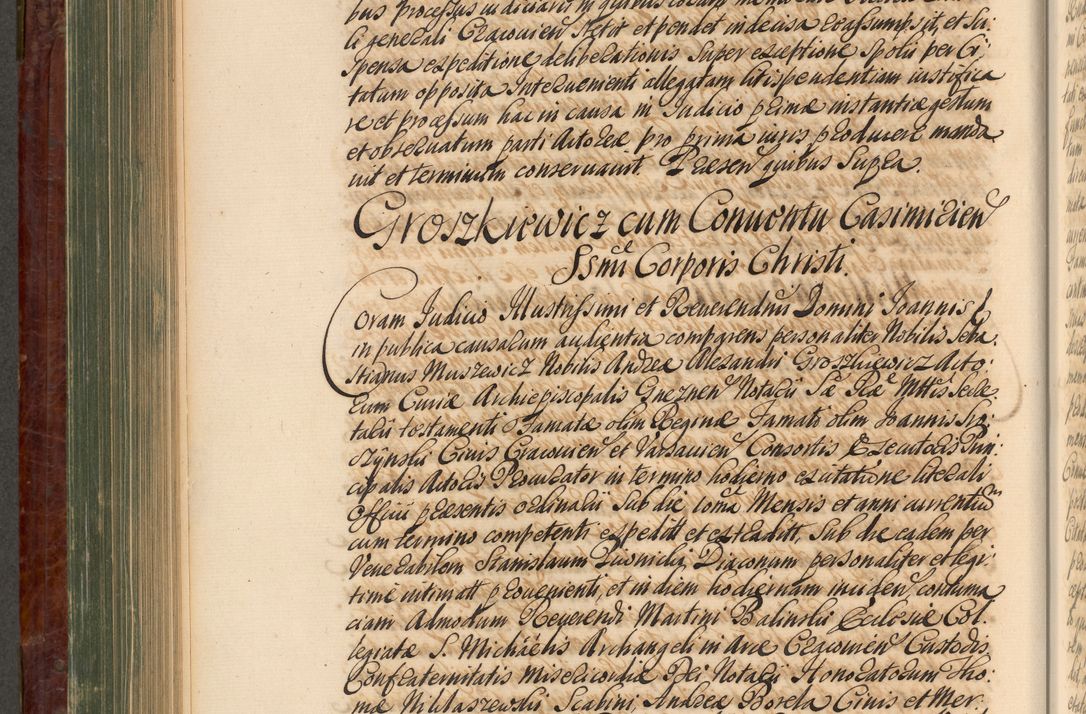 bus Processus iudiciarii in quibus
le generali Cracouien Stetit et pendet indecisa Erassumpsit, et Su:
spensa expeditione deliberationis super exceptione Spolii per Ci:
tatum opposita Interuenienti allegatam litispendentiam iustifica
re et processum hac in causa in Iudicio primæ instantiæ gestum
et obseruatum parti Actoreæ pro prima iuris producere manda
uit et terminum conseruauit. Præsen quibus Supra.
Groszkiewicz cum Conuentu Casimirien
Ssmi Corporis Christi.
Coram Iudicio Illustrissimi et Reuerendmi Domini Ioannis
in publica causarum audientia comparens personaliter Nobilis Seba
stianus Muszewicz Nobilis Andreæ Alexandri Groszkiewicz Acto:
rum Curiæ Archiepiscopalis Gneznen Notarii Sæ Ræ Mttis Secre:
tarii testamenti Famatæ olim Reginæ Famati olim Ioannis Spi:
szynski Ciuis Cracouien et Varsauien Consortis Executoris Prin:
cipalis Actoris Procurator in termino hodierno ex citatione literali
Officii præsentis ordinarii sub die 10ma Mensis et anni currentium
cum termino competenti expeditt et extraditt, Sub die eadem per
Venerabilem Stanislaum Piwnicki Diaconum personaliter et legi:
time intimatt proueniente, et in diem hodiernam inciden contuma
ciam Admodum Reyerendi Martini Balinski Ecclesiæ Col:
legiatæ S. Michäelis Archangeli in Arce Cracouien Custodis,
Confraternitatis Misericordiæ Dei Notarii Honoratorum Tho:
mæ Niklaszewski Scabini Andreæ Borela Ciuis et Mer: